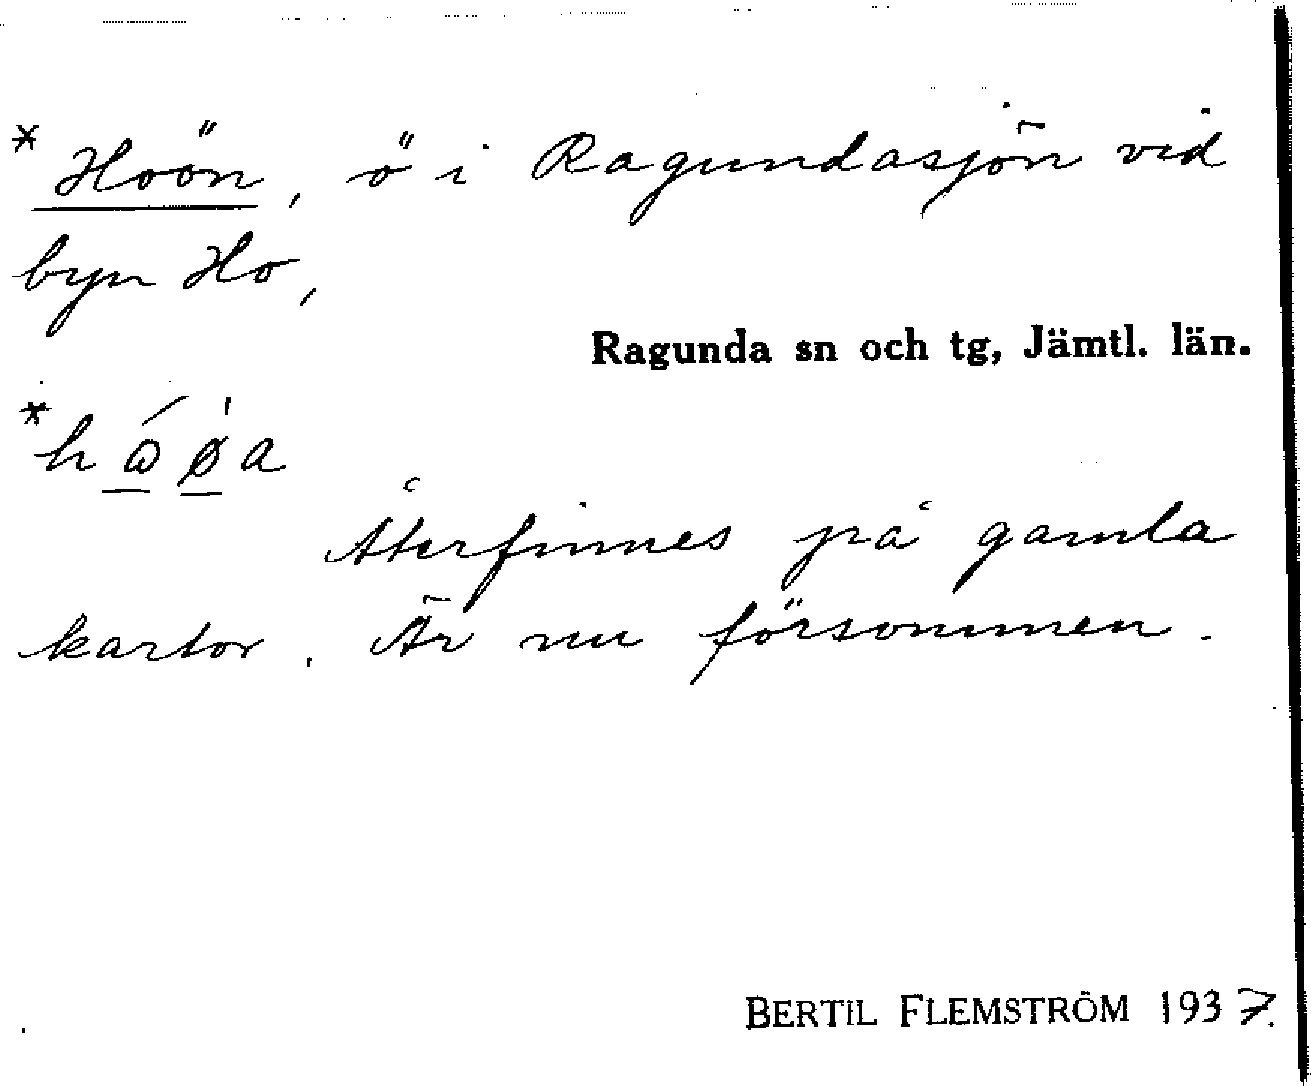 *Hoön, ö i Ragundasjön vid
byn Ho,
Ragunda sn och tg, Jämtl. län.
Återfinnes på gamla
kartor. Är nu försvunnen.
BERTIL FLEMSTRÖM 1937.